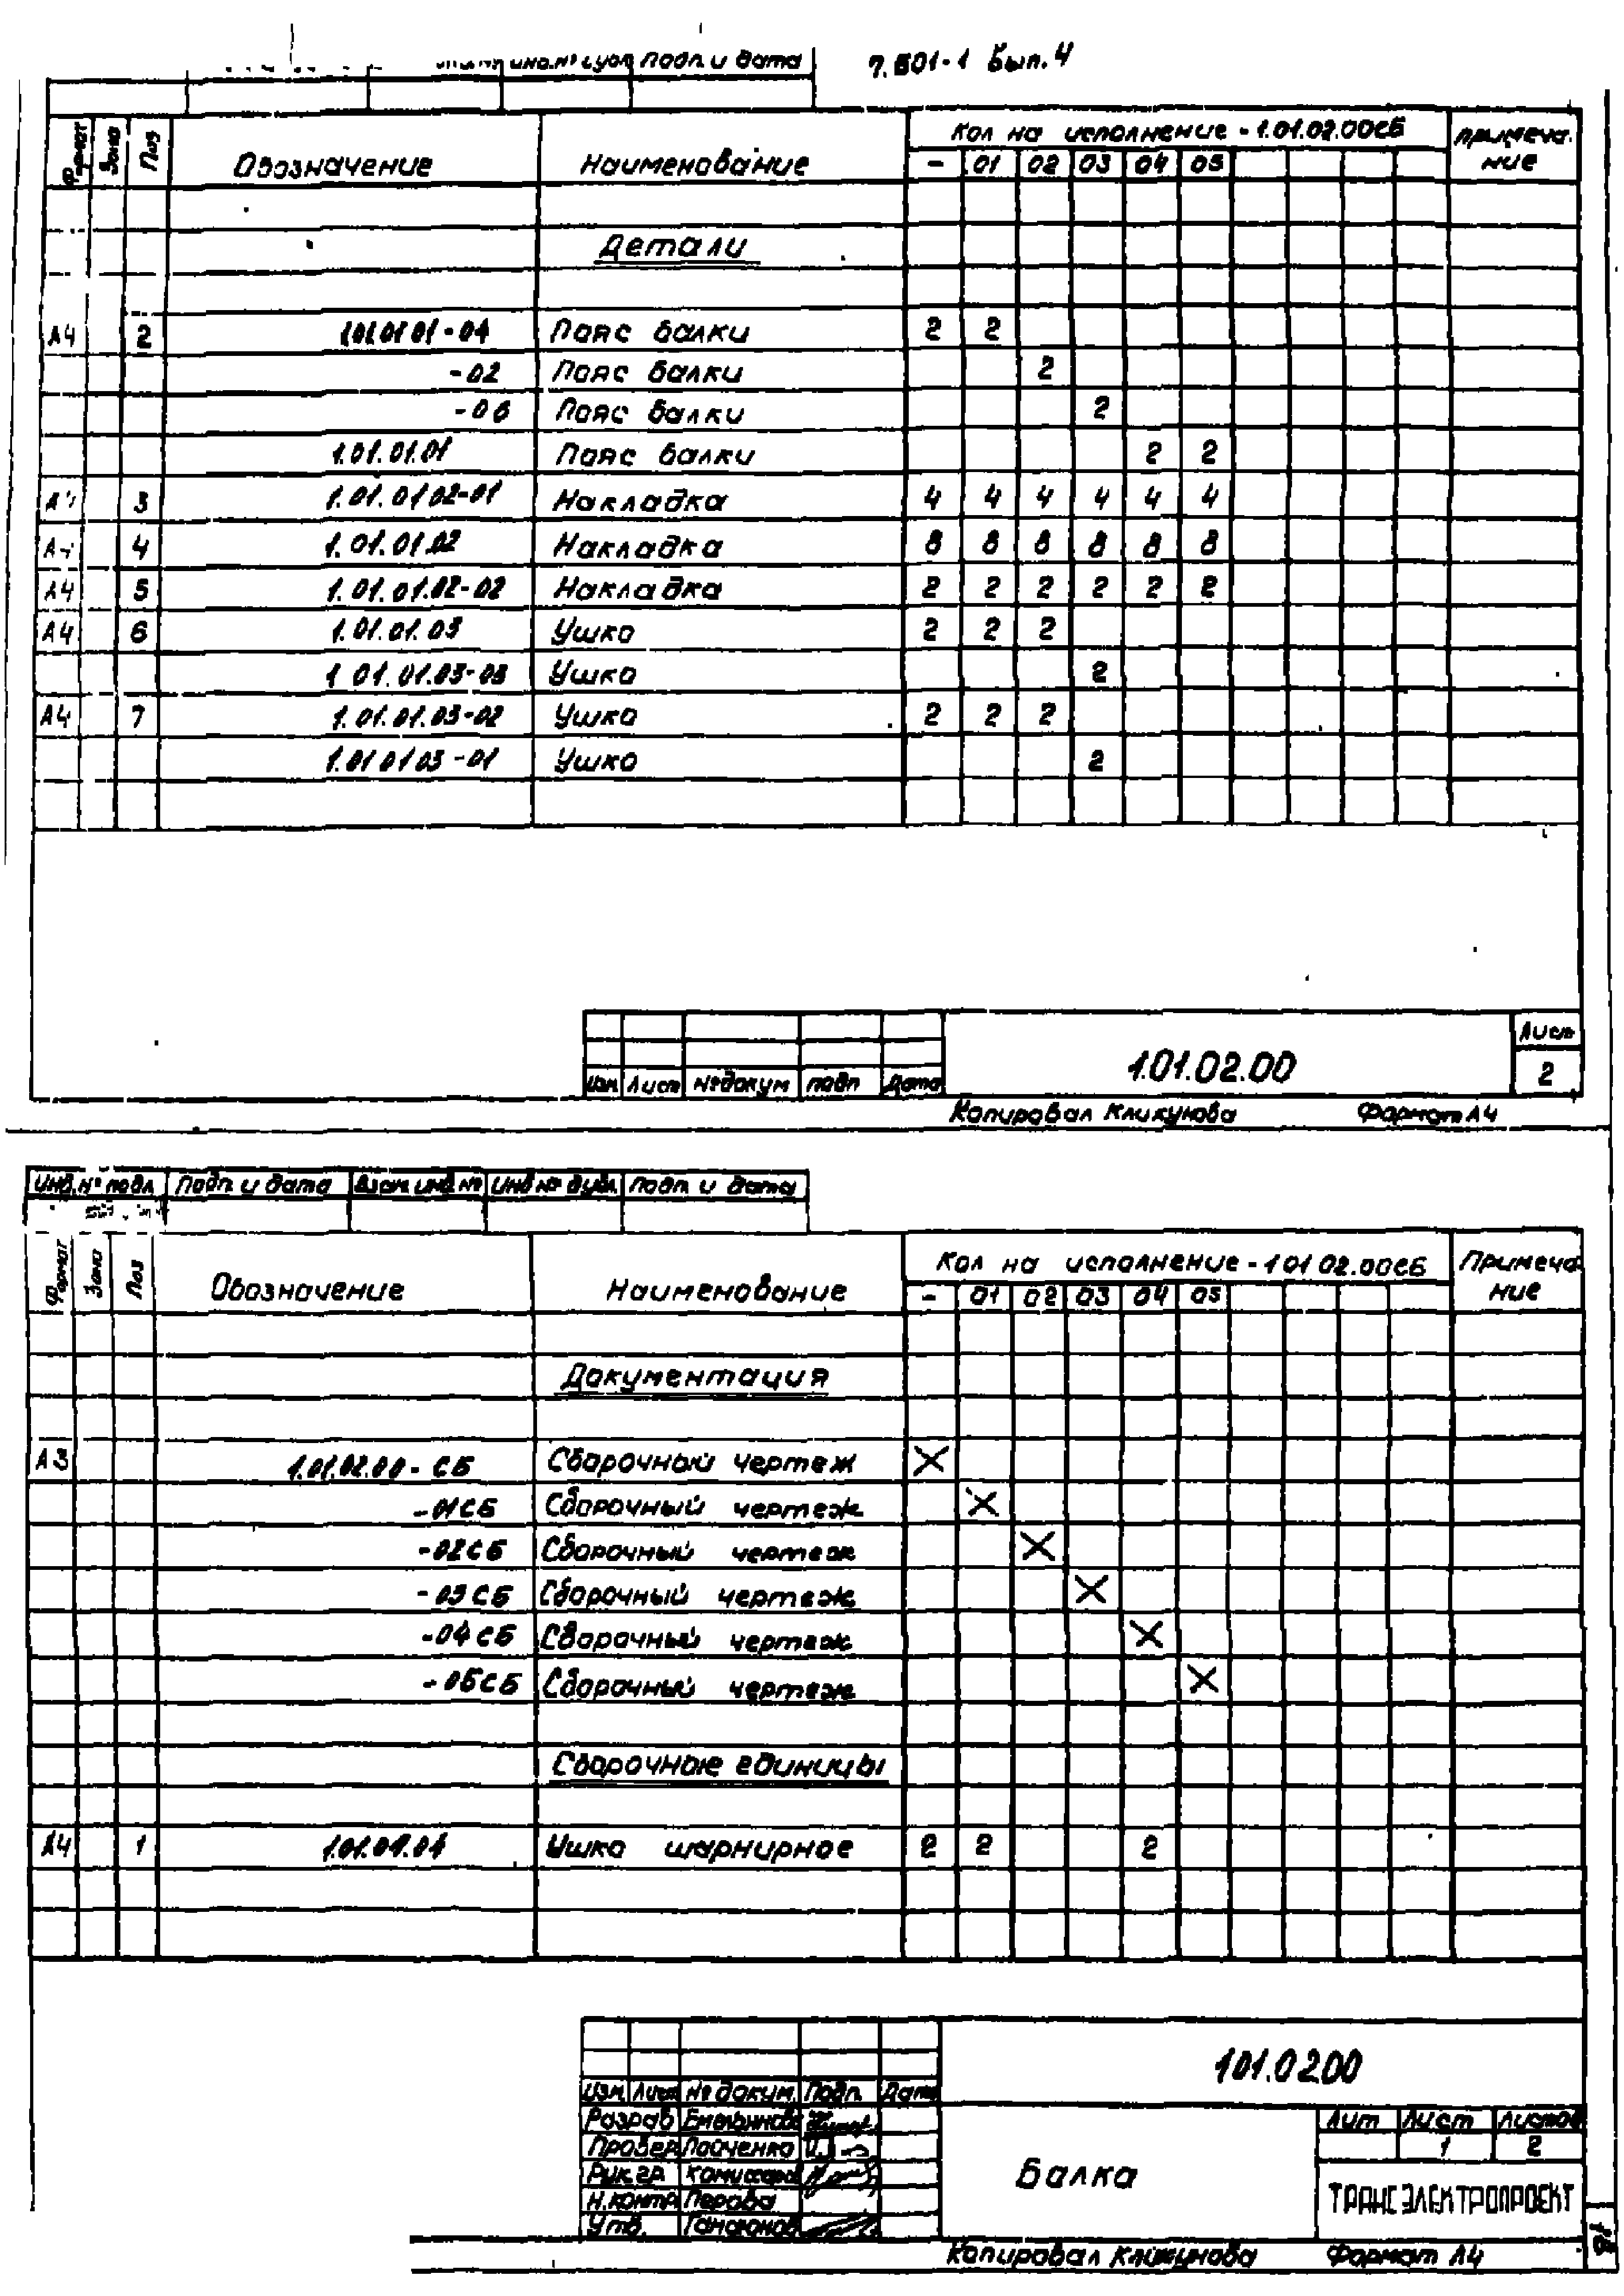 подп. и дата
7.501-1 Вып. 4
Формат Зона Поз Обозначение Наименование Кол на исполнение - 1.01.02.00СБ Примечание
- 01 02 03 04 05
Детали
А4 2 1.01.01.01-04 Пояс балки 2 2
-02 Пояс балки 2
-06 Пояс балки 2
1.01.01.01 Пояс балки 2 2
3 1.01.01 02-01 Накладка 4 4 4 4 4 4
4 1.01.01.02 Накладка 8 8 8 8 8 8
А4 5 1.01.01.02-02 Накладка 2 2 2 2 2 2
А4 6 1.01.01.03 Ушко 2 2 2
1 01.01.03-03 Ушко 2
А4 7 1.01.01.03-02 Ушко 2 2 2
1.01 01 03-01 Ушко 2
Изм Лист № докум подп Дата 1.01.02.00 Лист 2
Копировал Кликунова Формат А4
Инв. № подл Подп и дата Взам инв № Инв № дубл подп и дата
Формат Зона Поз Обозначение Наименование Кол на исполнение - 1 01 02.00СБ Примечание
- 01 02 03 04 05
Документация
А3 1.01.02.00 - СБ Сборочный чертеж X
-01СБ Сборочный чертеж X
-02СБ Сборочный чертеж X
-03СБ Сборочный чертеж X
-04СБ Сборочный чертеж X
-05СБ Сборочный чертеж X
Сборочные единицы
А4 1 1.01.01.04 Ушко шарнирное 2 2 2
1 01.02 00
Изм Лист № докум. Подп. Дата
Разраб
Провер
Рук. гр
Н. контр Перова
Утв.
Балка
Лит Лист Листов
1 2
ТРАНСЭЛЕКТРОПРОЕКТ
Копировал Кликунова Формат А4